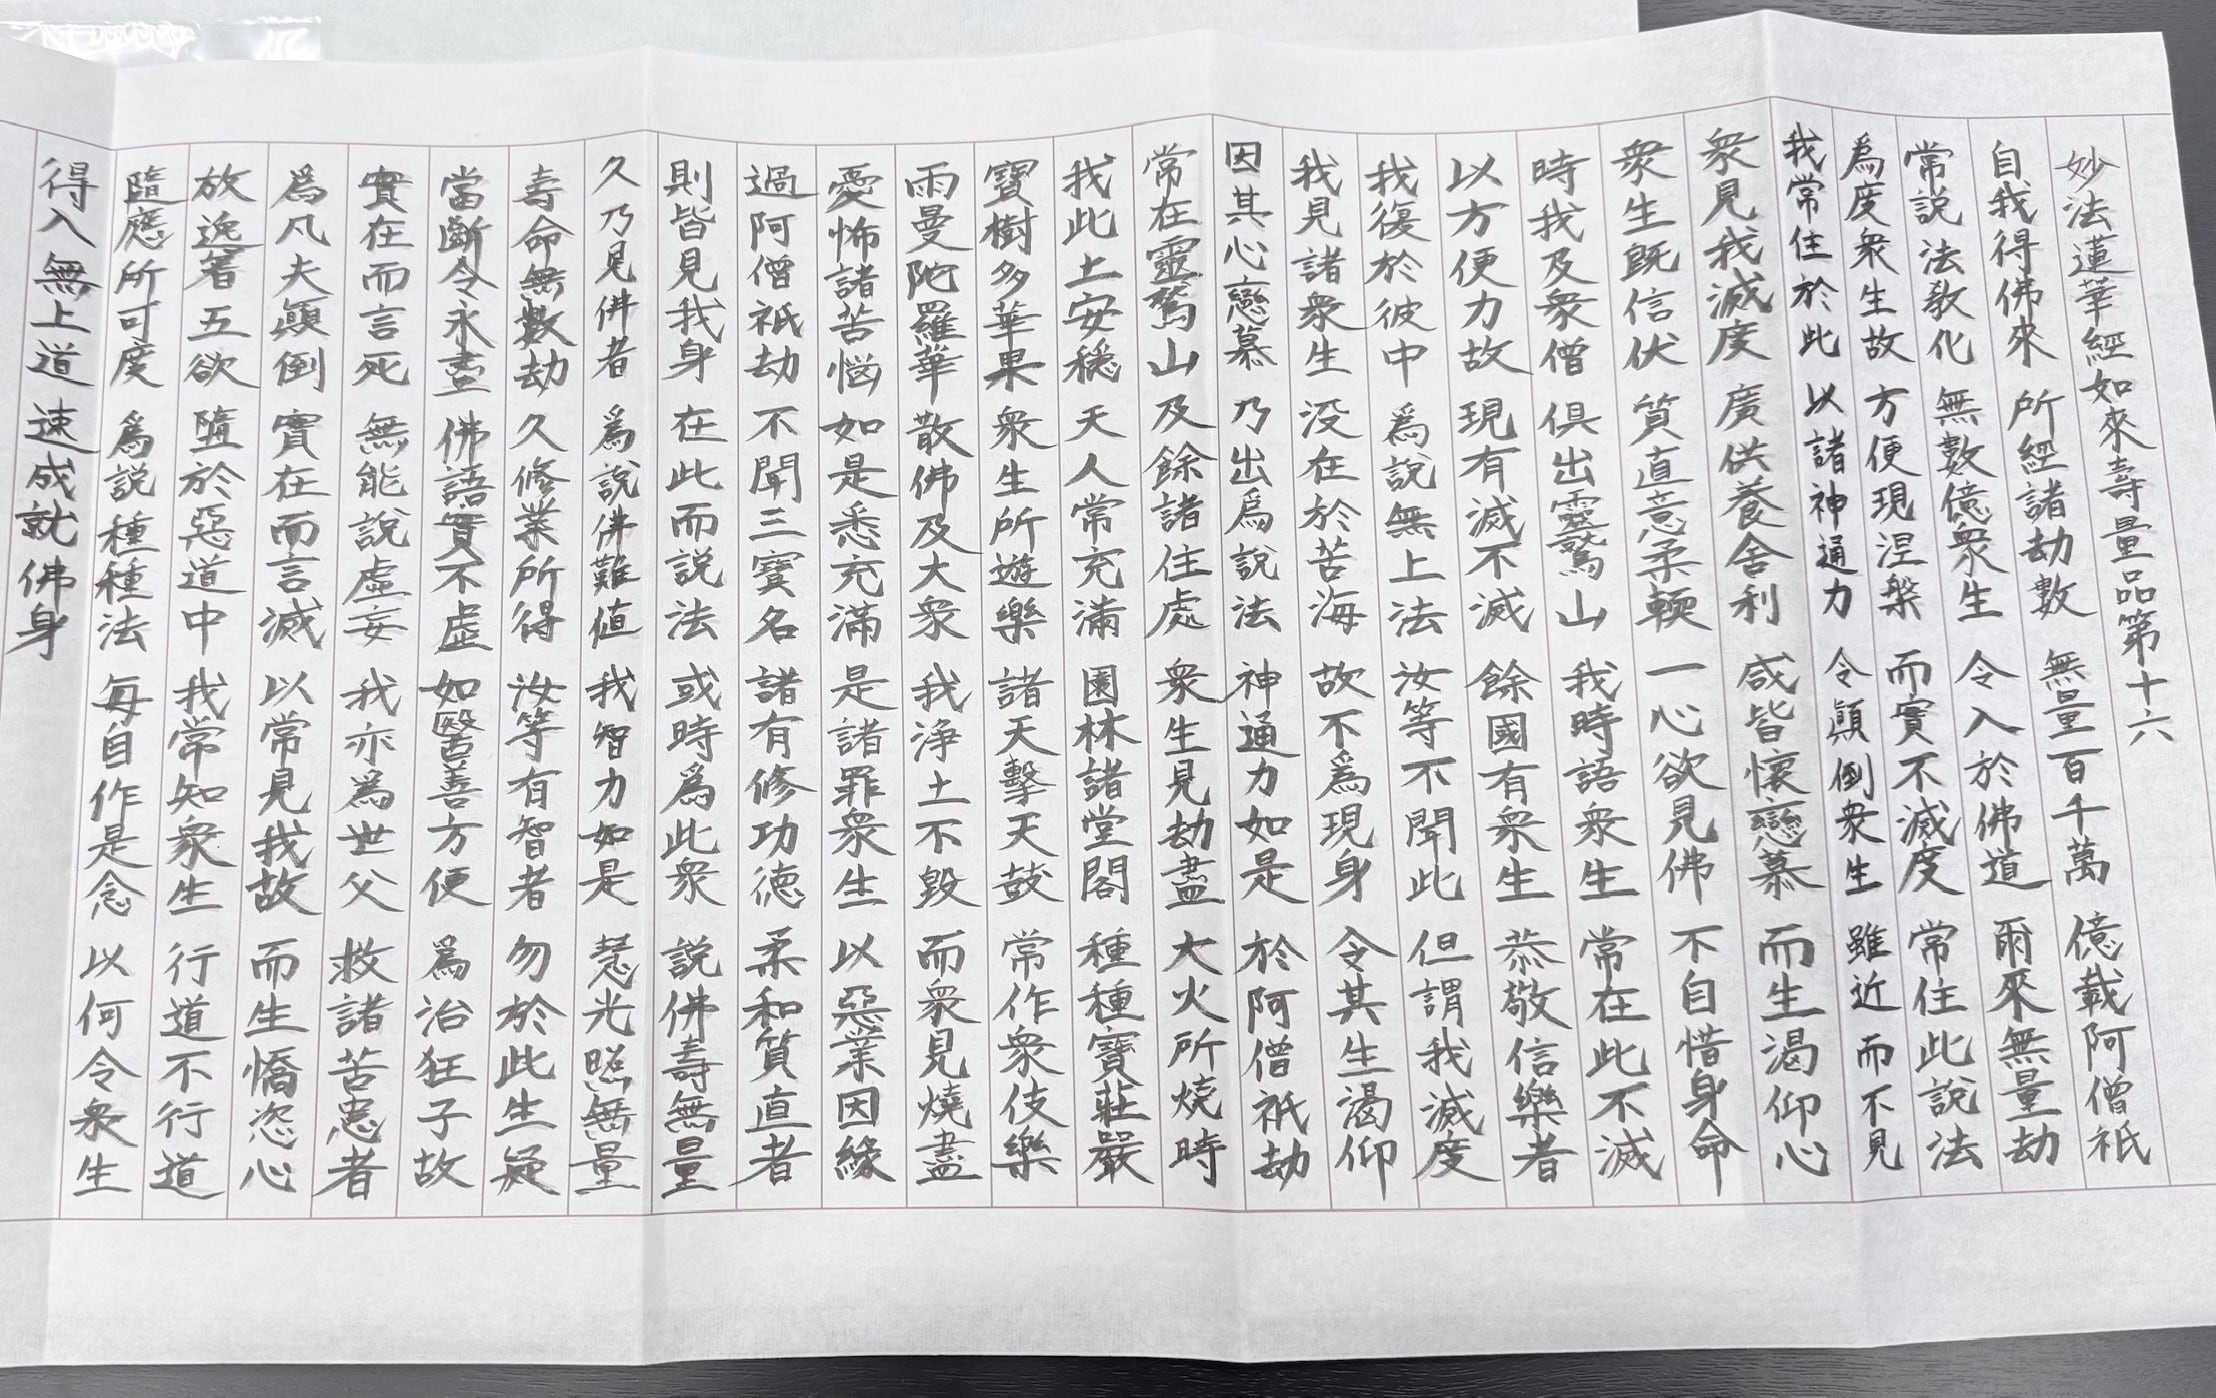 妙法蓮華經如來壽量品第十六
自我得佛來 所經諸劫數 無量百千萬 億載阿僧祇
常説法教化 無數億衆生 令入於佛道 爾來無量劫
爲度衆生故 方便現涅槃 而實不滅度 常住此説法
我常住於此 以諸神通力 令顛倒衆生 雖近而不見
衆見我滅度 廣供養舎利 咸皆懐戀慕 而生渇仰心
衆生既信伏 質直意柔輭 一心欲見佛 不自惜身命
時我及衆僧 倶出靈鷲山 我時語衆生 常在此不滅
以方便力故 現有滅不滅 餘國有衆生 恭敬信樂者
我復於彼中 爲説無上法 汝等不聞此 但謂我滅度
我見諸衆生 没在於苦海 故不爲現身 令其生渇仰
因其心戀慕 乃出爲説法 神通力如是 於阿僧祇劫
常在靈鷲山 及餘諸住處 衆生見劫盡 大火所燒時
我此土安穏 天人常充滿 園林諸堂閣 種種寶莊嚴
寶樹多華果 衆生所遊樂 諸天撃天鼓 常作衆伎樂
雨曼陀羅華 散佛及大衆 我浄土不毀 而衆見燒盡
憂怖諸苦惱 如是悉充滿 是諸罪衆生 以惡業因縁
過阿僧祇劫 不聞三寶名 諸有修功徳 柔和質直者
則皆見我身 在此而説法 或時爲此衆 説佛壽無量
久乃見佛者 爲説佛難値 我智力如是 慧光照無量
壽命無數劫 久修業所得 汝等有智者 勿於此生疑
當斷令永盡 佛語實不虚 如醫善方便 爲治狂子故
實在而言死 無能説虚妄 我亦爲世父 救諸苦患者
爲凡夫顛倒 實在而言滅 以常見我故 而生憍恣心
放逸著五欲 墮於惡道中 我常知衆生 行道不行道
隨應所可度 爲説種種法 毎自作是念 以何令衆生
得入無上道 速成就佛身